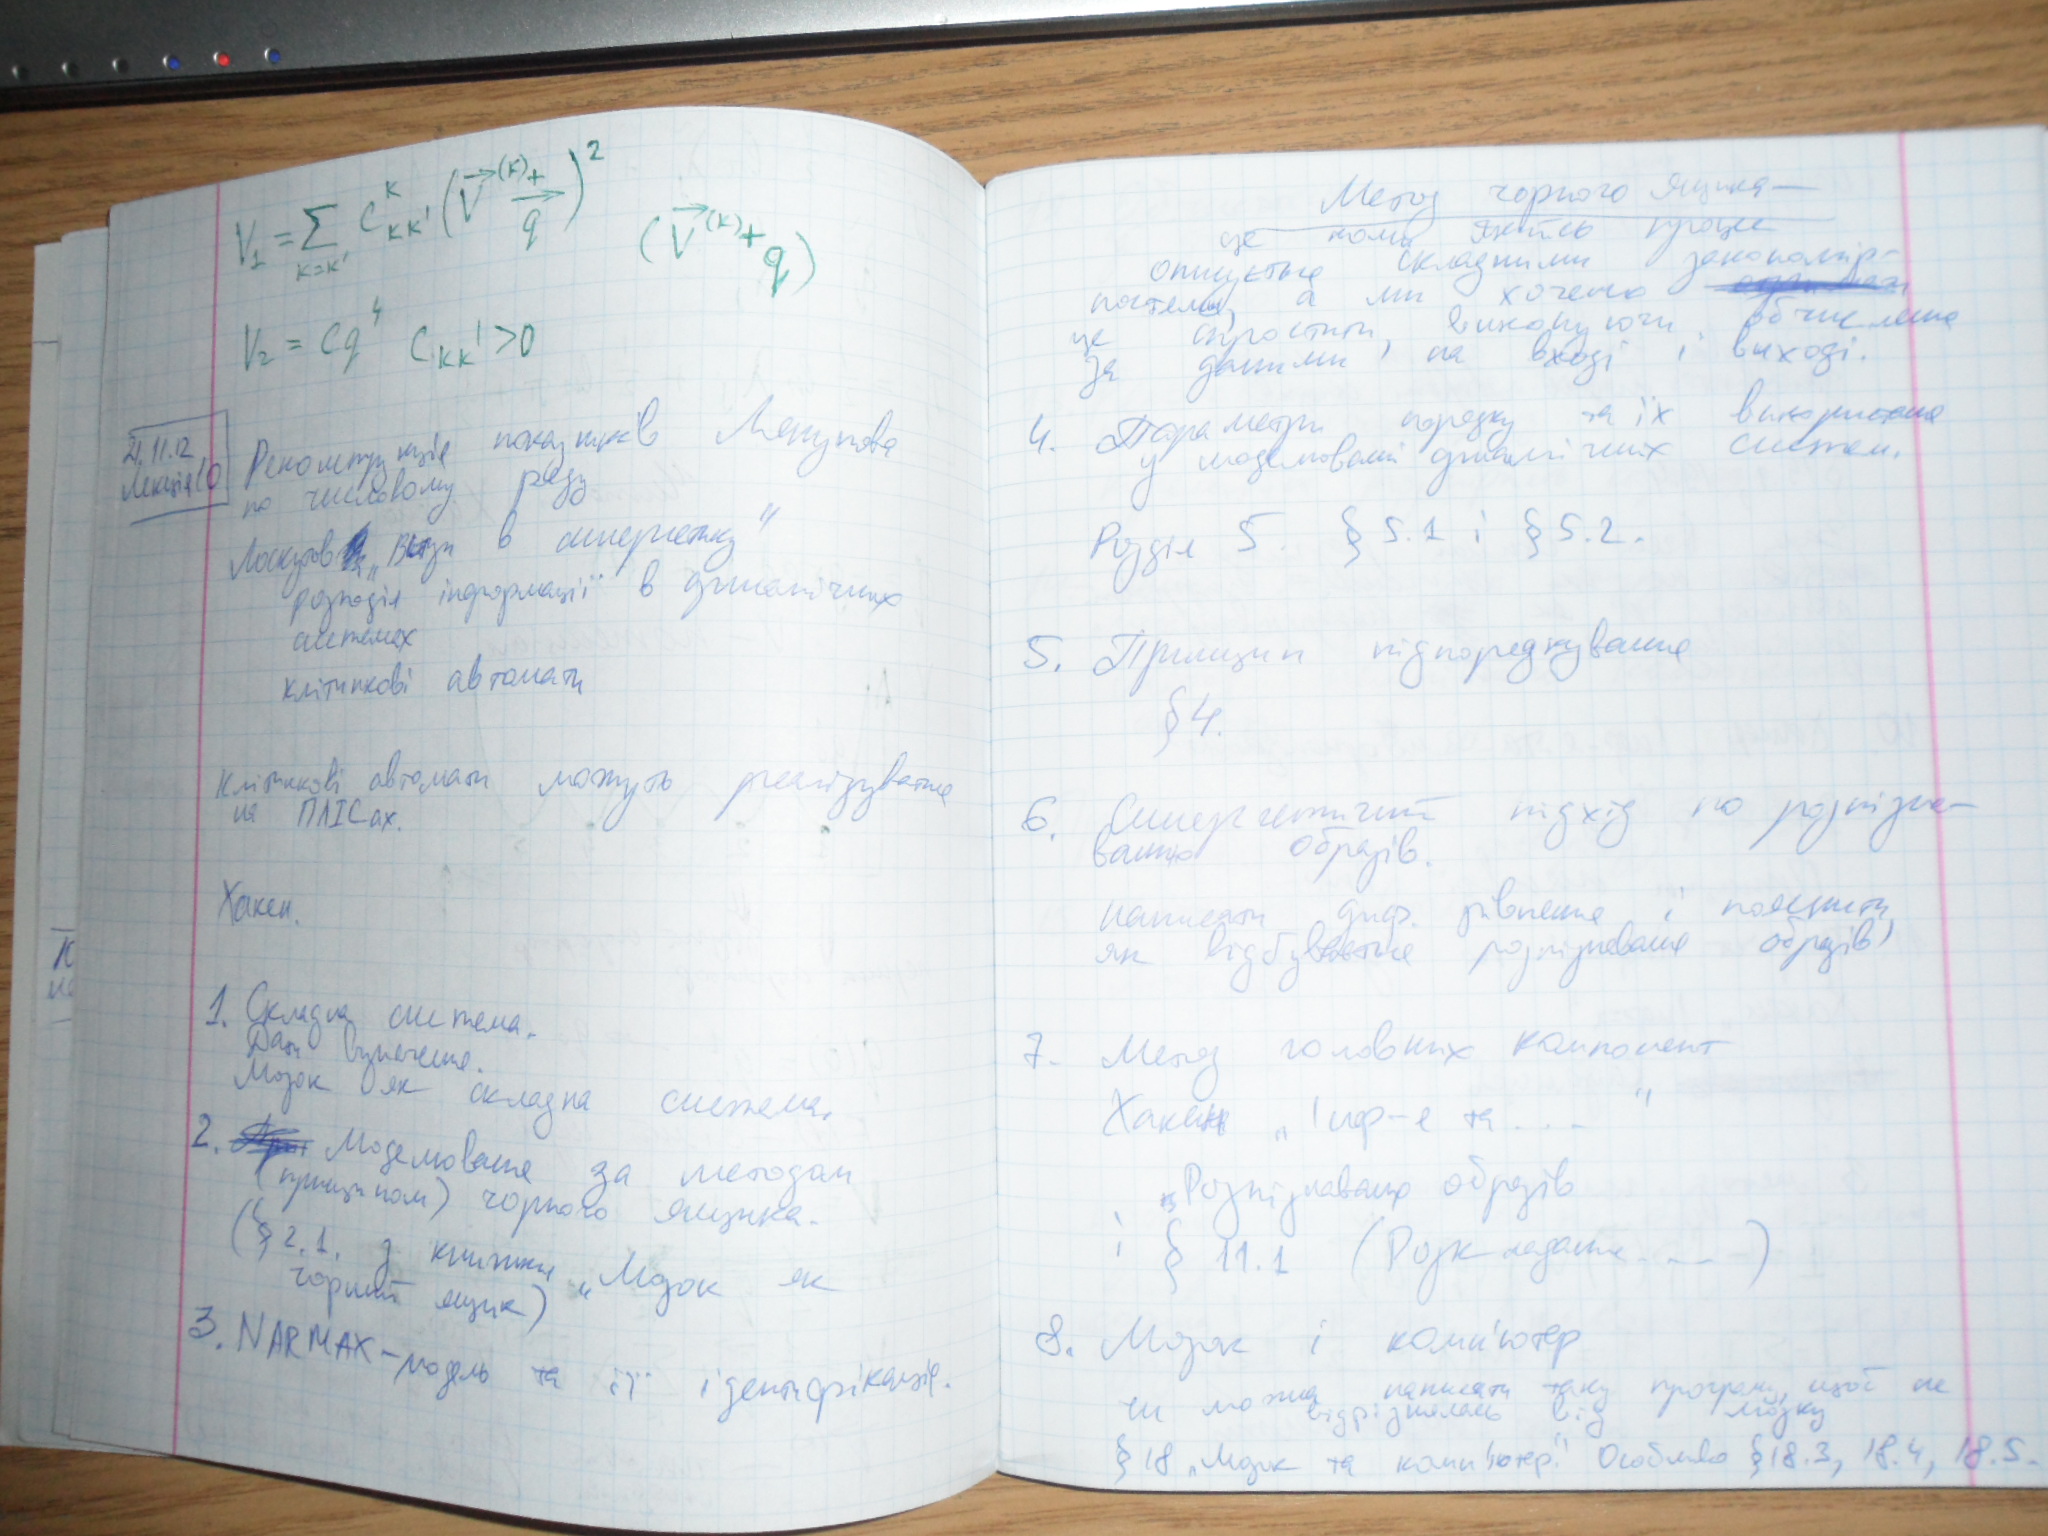 V₁ = Σ_{k=k'} C^k_{kk'} (V⃗^{(k)+} q⃗)²
(V⃗^{(k)+} q)
V₂ = Cq⁴ C_{kk'} > 0
21.11.12
Лекція 10
Реконструкція показників Ляпунова
по числовому ряду
Лоскутов „Вступ в синергетику“
розподіл інформації в динамічних
системах
клітинкові автомати
Клітинкові автомати можуть реалізуватися
на ПЛІСах.
Хакен.
1. Складна система.
Дати визначення.
Мозок як складна система.
2. Моделювання за методом
(принципом) чорного ящика.
(§ 2.1. з книжки „Мозок як
чорний ящик)
3. NARMAX-модель та її ідентифікація.
Метод чорного ящика —
це коли якийсь процес
описується складними закономір-
ностями, а ми хочемо
це спростити, виконуючи обчислення
за даними, на вході і виході.
4. Параметри порядку та їх використання
у моделюванні динамічних систем.
Розділ 5. § 5.1 і § 5.2.
5. Принцип підпорядкування
§ 4.
6. Синергетичний підхід по розпізна-
ванню образів.
написати диф. рівняння і пояснити,
як відбувається розпізнавання образів)
7. Метод головних компонент
Хакен „Інф-я та ... “
„Розпізнавання образів
і § 11.1 (Розкладання ....)
8. Мозок і комп'ютер
чи можна написати таку програму, щоб не
відрізнялась від мозку
§ 18 „Мозок та комп'ютер.“ Особливо § 18.3, 18.4, 18.5.